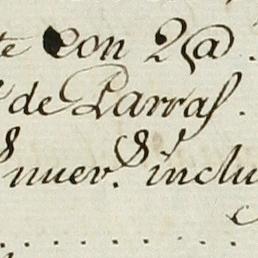 te con 2@
de Parras.
nuev.s inclu